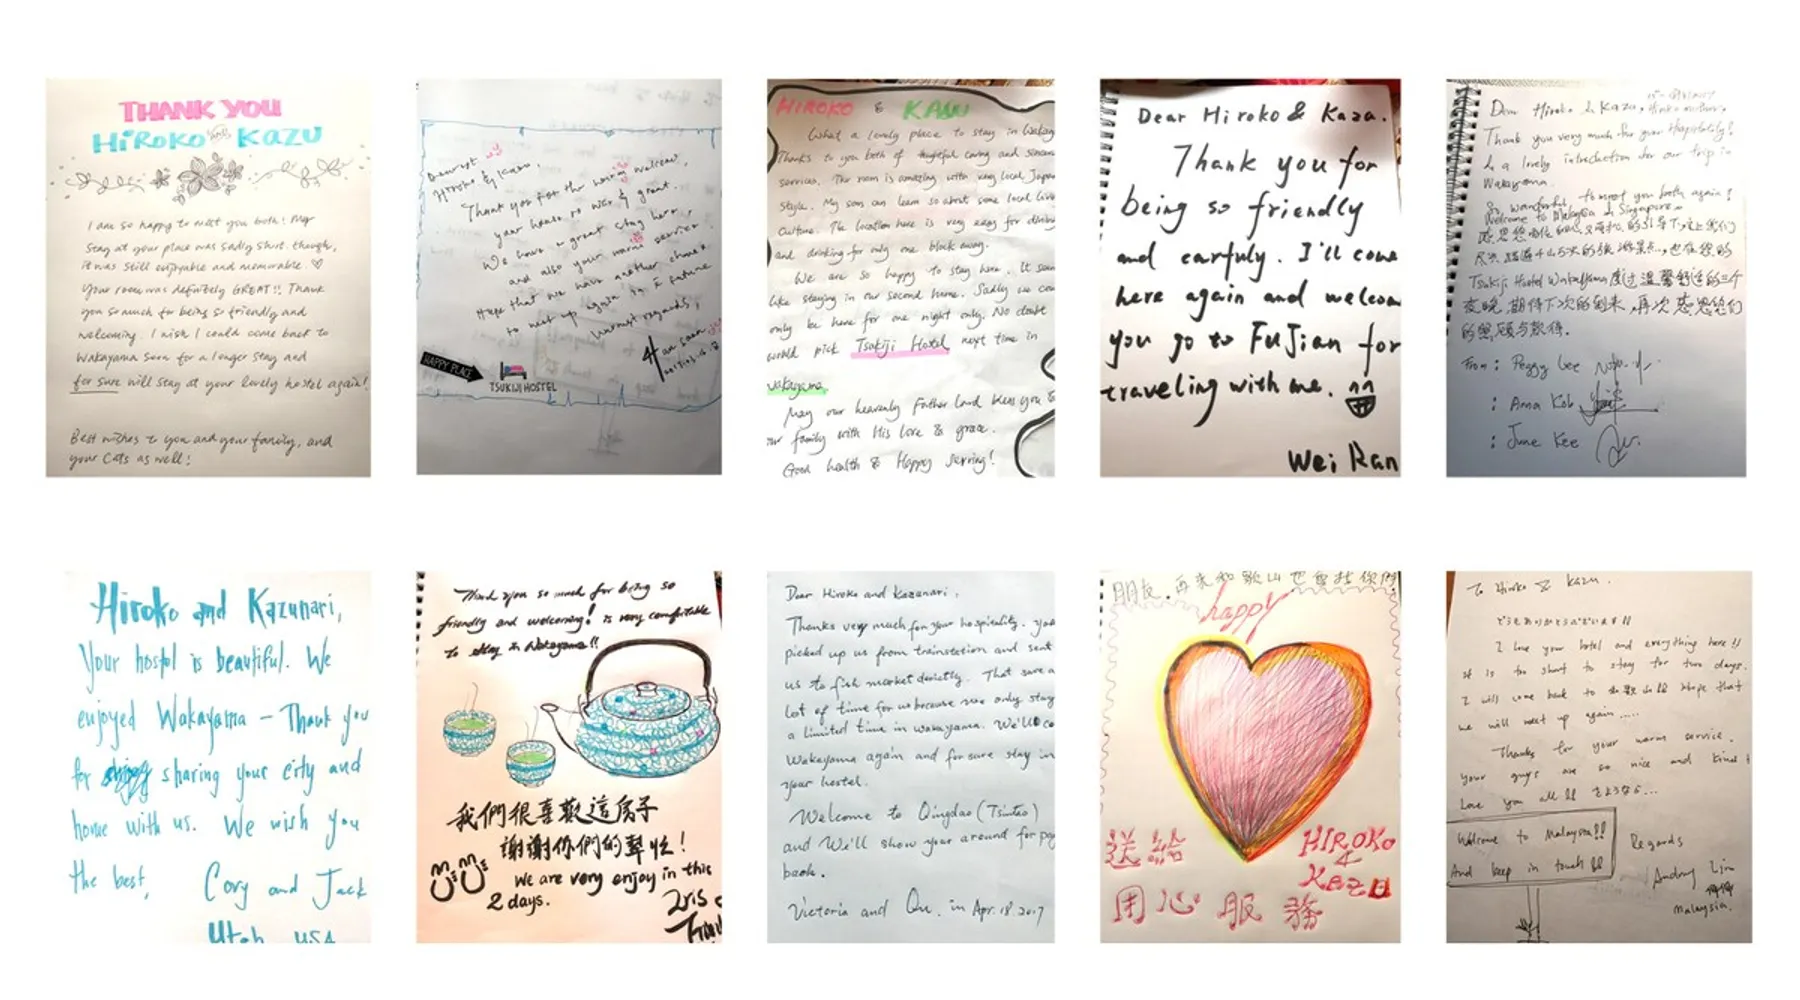 THANK YOU
HIROKO and KAZU
I am so happy to meet you both! My
stay at your place was sadly short. though,
it was still enjoyable and memorable. ♡
Your room was definitely GREAT!! Thank
you so much for being so friendly and
welcoming. I wish I could come back to
Wakayama soon for a longer stay and
for sure will stay at your lovely hostel again!
Best wishes to you and your family, and
your cats as well!
Dearest
Hiroko & Kazu,
Thank you for the warm welcome,
your house so nice & great.
We have a great stay here,
and also your warm service!
Hope that we have another chance
to meet up again in future
Warmest regards,
HAPPY PLACE
TSUKIJI HOSTEL
HIROKO & KAZU
What a lovely place to stay in Wakay
Thanks to you both of caring and sincere
services. The room is amazing with very local Japan
style. My son can learn so about some local live
culture. The location here is very easy for dining
and drinking for only one block away.
We are so happy to stay here. It seem
like staying in our second home. Sadly we cou
only be here for one night only. No doubt
would pick Tsukiji Hostel next time in
wakayama
May our heavenly Father Lord bless you &
ur family with His love & grace.
Good health & Happy serving!
Dear Hiroko & Kaza.
Thank you for
being so friendly
and carfuly. I'll come
here again and welcom
you go to FuJian for
traveling with me.
Wei Ran
Dear Hiroko & Kazu, Hiroko mother,
Thank you very much for your Hospitality!
Is a lovely introduction for our trip in
Wakayama.
So wonderful, to meet you both again!
Welcome to Malaysia & Singapore
Tsukiji Hostel Wakayama度过温馨舒适的三个
夜晚,期待下次的到来,再次感恩您们
的照顾与款待。
From : Peggy Lee
: Anna Koh
: June Kee
Hiroko and Kazunari,
Your hostel is beautiful. We
enjoyed Wakayama - Thank you
for sharing your city and
home with us. We wish you
the best,
Cory and Jack
Utah USA
Thank you so much for being so
friendly and welcoming! is very comfortable
to stay in Wakayama!!
我們很喜歡這房子
謝謝你們的幫忙!
We are very enjoy in this
2 days.
Dear Hiroko and Kazunari,
Thanks very much for your hospitality. You
picked up us from trainstation and sent
us to fish market directly. That save a
lot of time for us because we only stay
a limited time in wakayama. We'll co
Wakayama again and for sure stay in
your hostel.
Welcome to Qingdao (Tsintao)
and We'll show you around for pay
back.
Victoria and Qu. in Apr. 18. 2017
朋友,再来和歌山也要找你們
happy
送給 HIROKO
& KAZU
用心服務
To Hiroko & Kazu.
どうもありがとうございます!!
I love your hotel and everything here!!
It is too short to stay for two days.
I will come back to 和歌山 & Hope that
we will meet up again.....
Thanks for your warm service.
your guys are so nice and kind!
Love you all!! さようなら...
Welcome to Malaysia!!
And keep in touch!!
Regards
Lim
Malaysia.